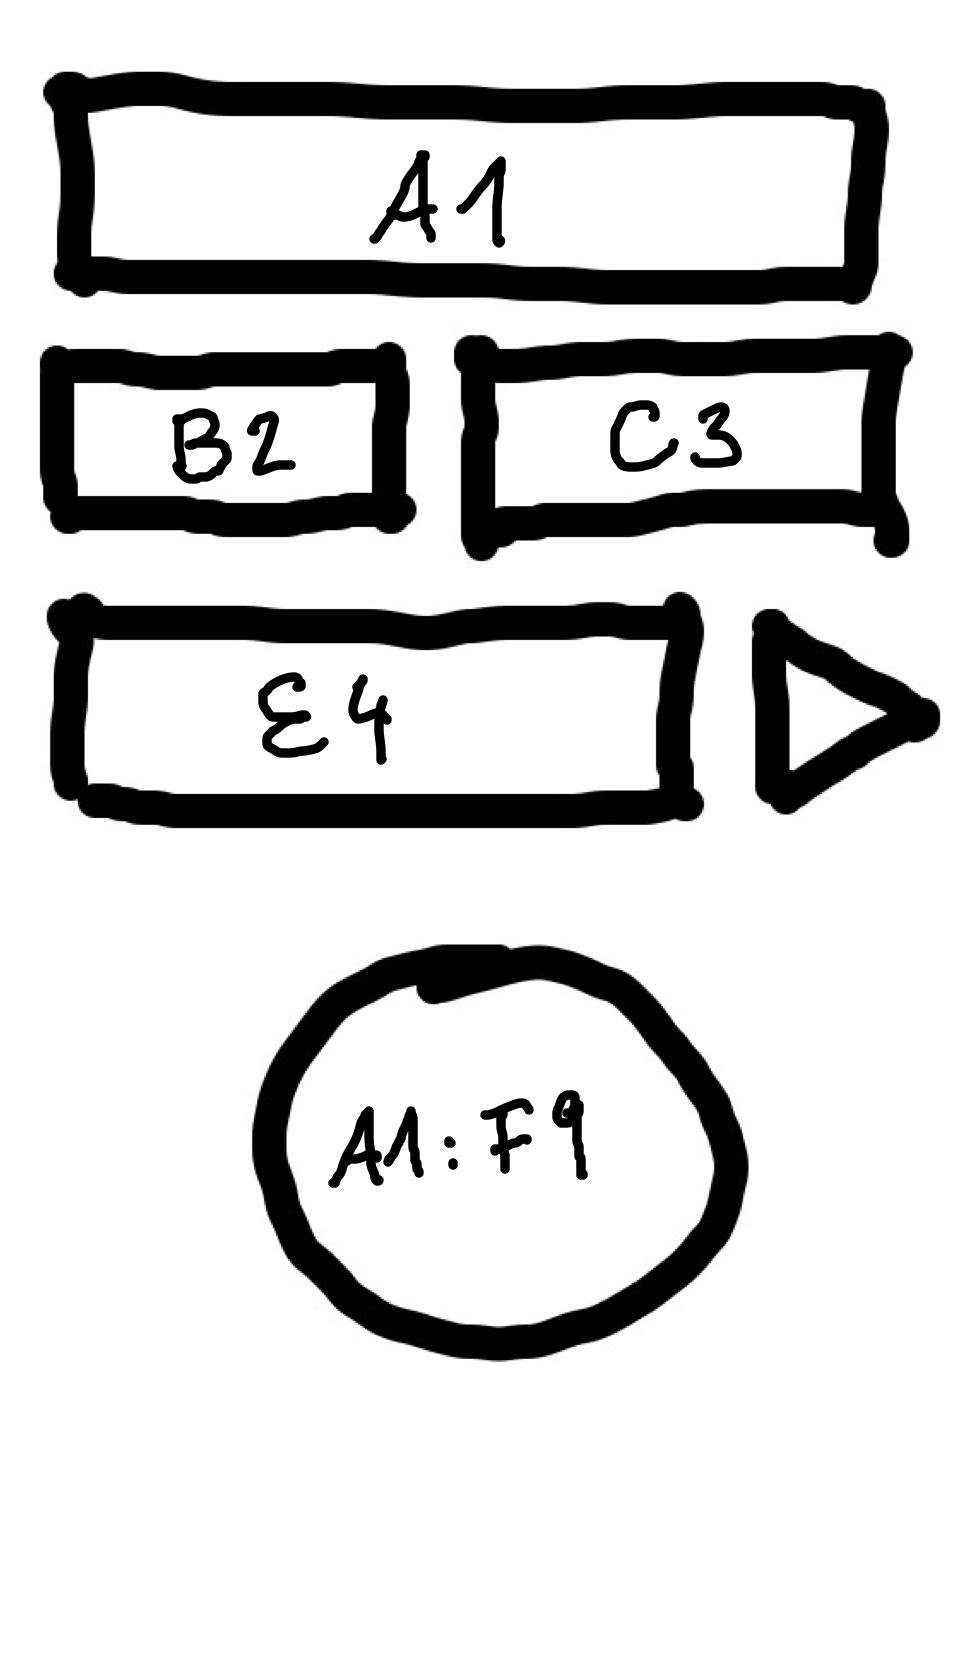 A1
B2
C3
E4
A1:F9